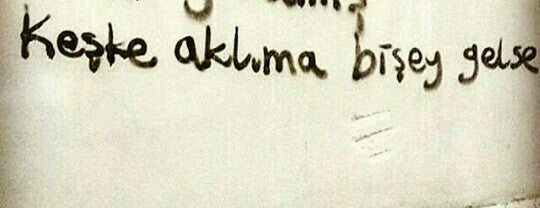 Keşke aklıma bişey gelse